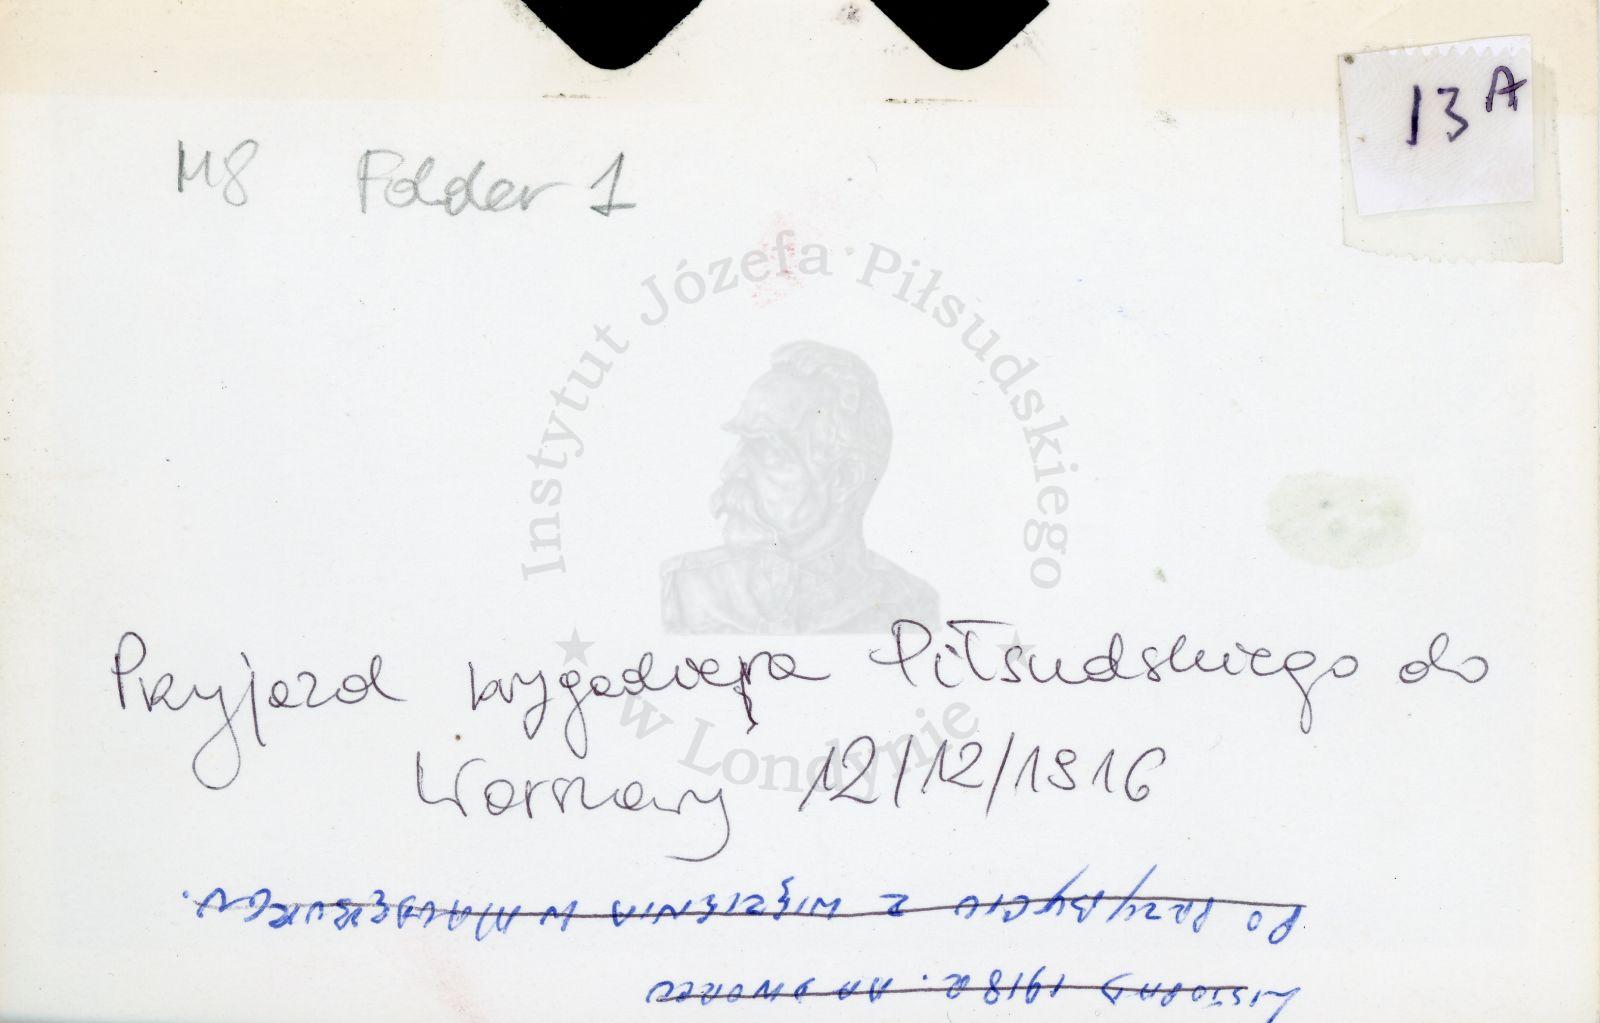 13 A
M8 Folder 1
Instytut Józefa Piłsudskiego
w Londynie
Przyjazd brygadiera Piłsudskiego do
Warszawy 12/12/1916
LISTOPAD 1918 R. NA DWORCU
PO PRZYBYCIU Z WIĘZIENIA W MAGDEBURGU.